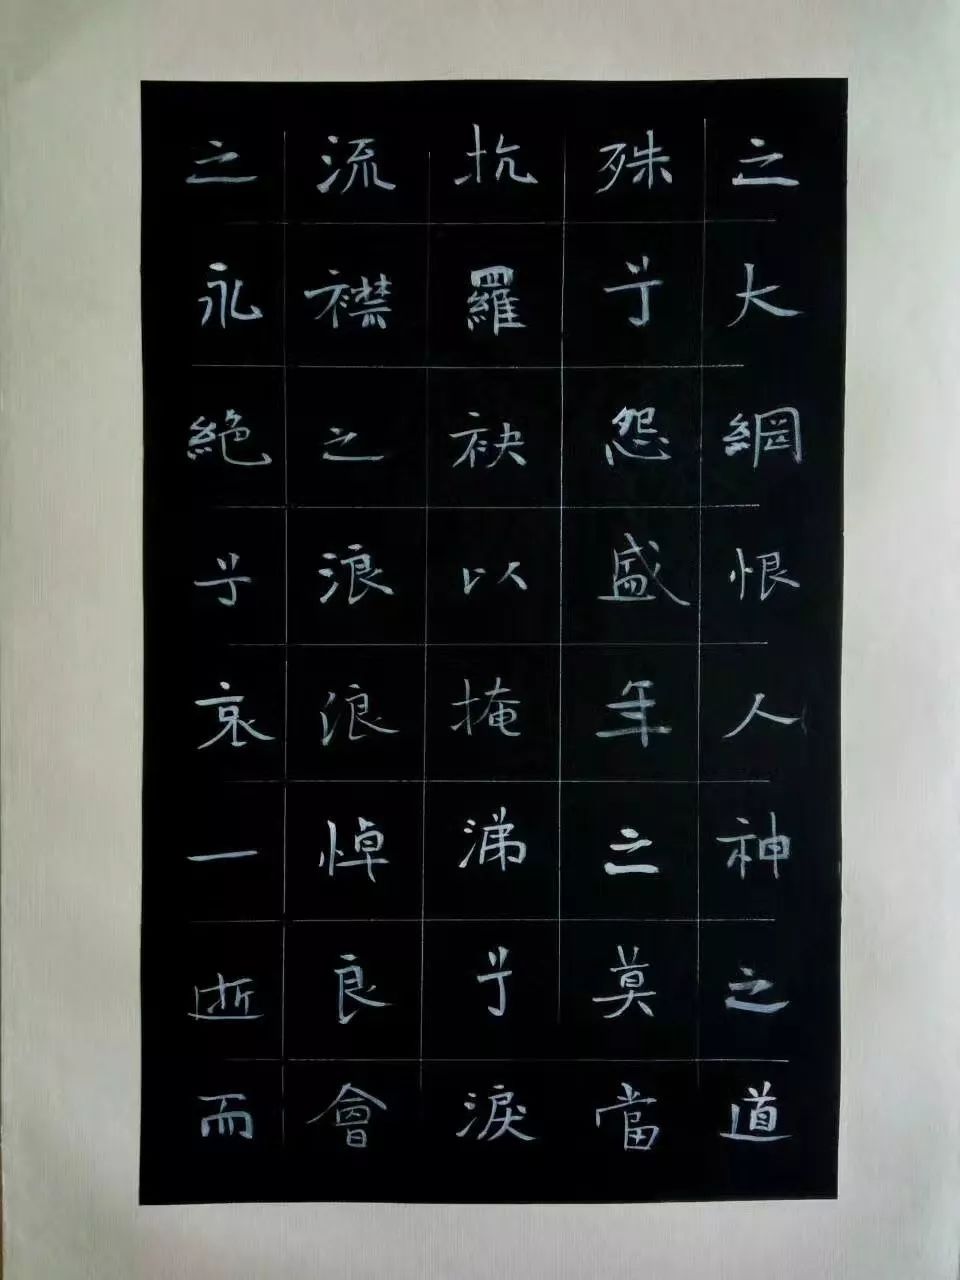 之大綱恨人神之道
殊兮怨盛年之莫當
抗羅袂以掩涕兮淚
流襟之浪浪悼良會
之永絕兮哀一逝而